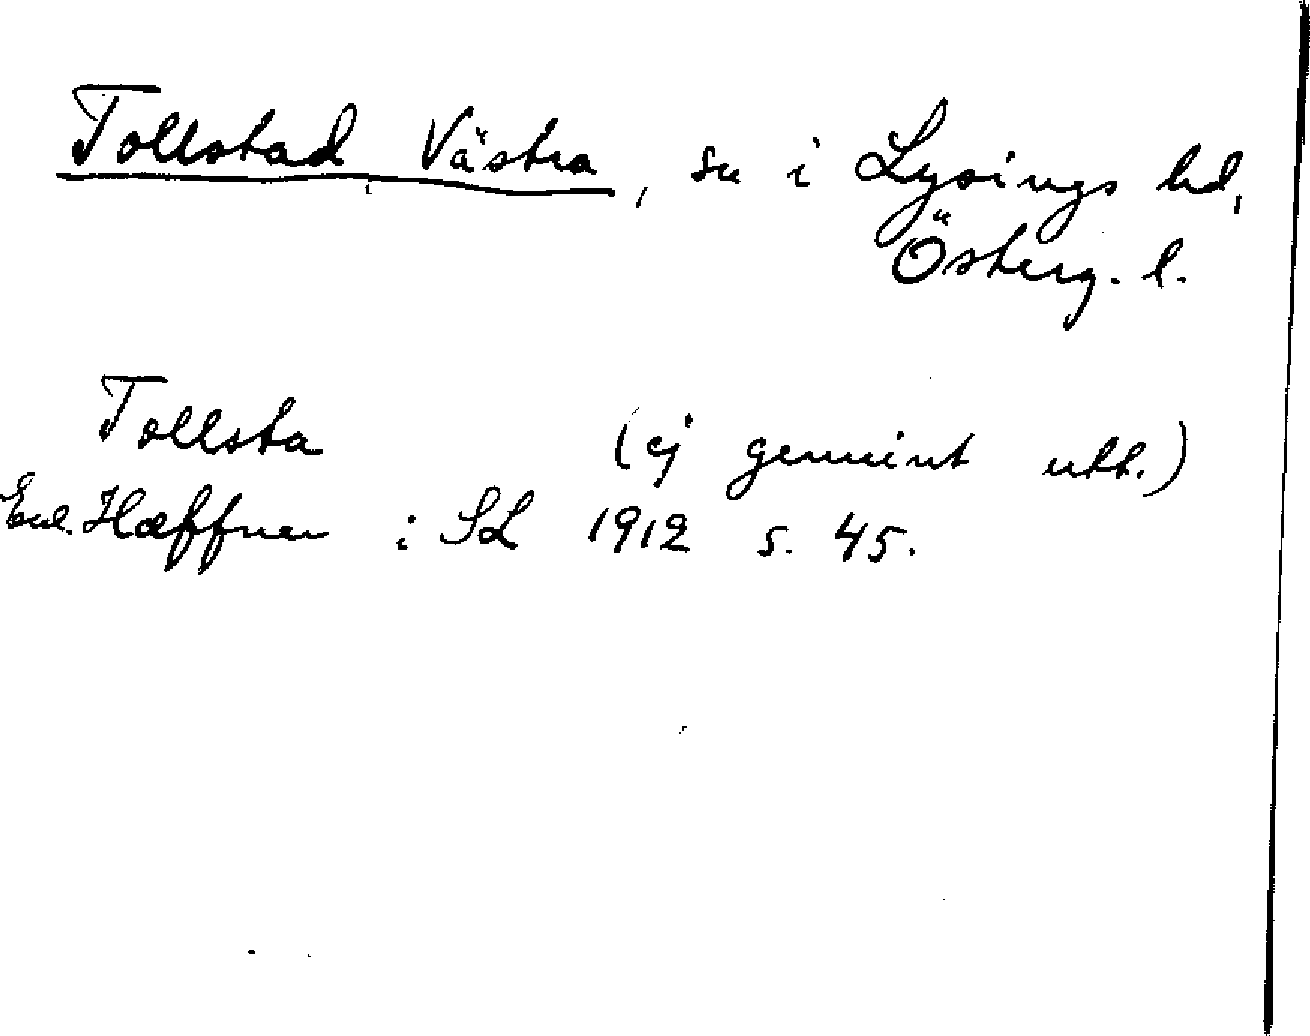 Tollstad, Västra, sn i Lysings hd,
Österg. l.
Tollsta (ej genuint utt.)
Enl. Hæffner i SL 1912 s. 45.